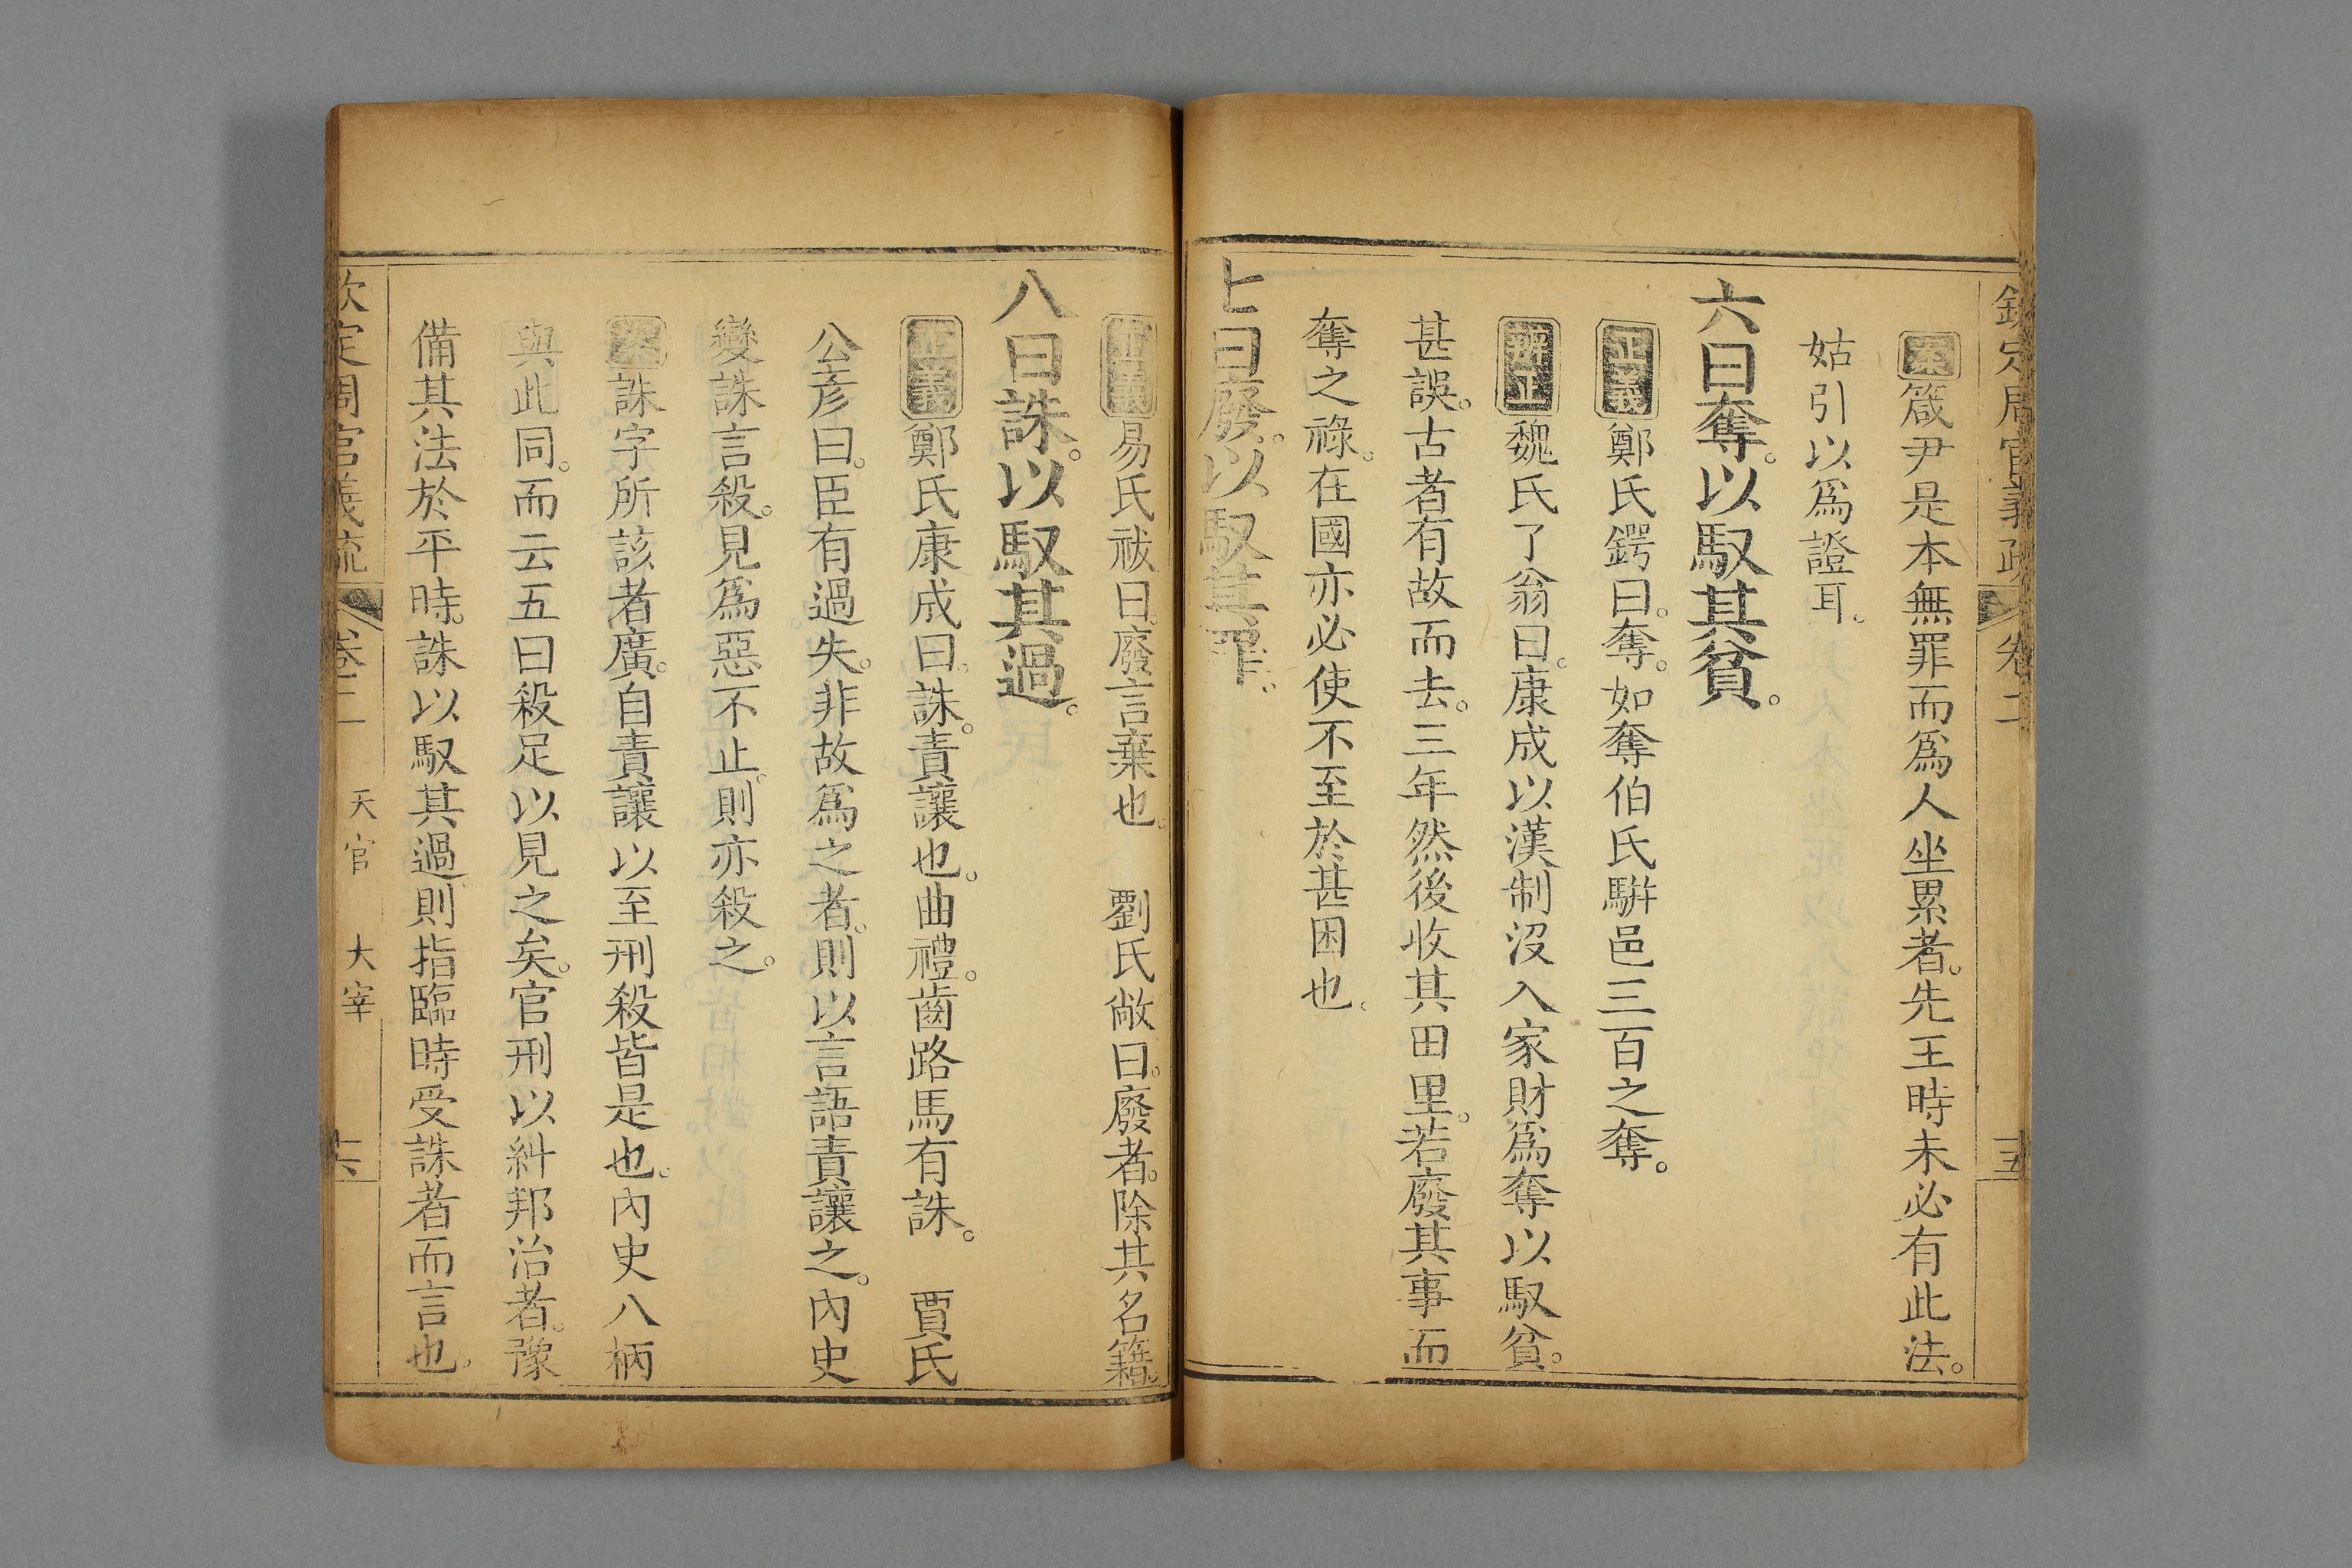 欽定周官義疏 卷二 十五
案箴尹是本無罪而爲人坐累者。先王時未必有此法。
姑引以爲證耳。
六曰奪。以馭其貧。
正義鄭氏鍔曰。奪。如奪伯氏駢邑三百之奪。
辨正魏氏了翁曰。康成以漢制沒入家財爲奪以馭貧。
甚誤。古者有故而去。三年然後收其田里。若廢其事而
奪之祿。在國亦必使不至於甚困也。
七曰廢。以馭其罪。
正義易氏祓曰。廢言棄也。 劉氏敞曰。廢者。除其名籍。
八曰誅。以馭其過。
正義鄭氏康成曰。誅。責讓也。曲禮。齒路馬有誅。 賈氏
公彥曰。臣有過失。非故爲之者。則以言語責讓之。內史
變誅言殺。見爲惡不止。則亦殺之。
案誅字所該者廣。自責讓以至刑殺皆是也。內史八柄
與此同。而云五曰殺足以見之矣。官刑以糾邦治者。豫
備其法於平時。誅以馭其過則指臨時受誅者而言也。
欽定周官義疏 卷二 天官 大宰 十六